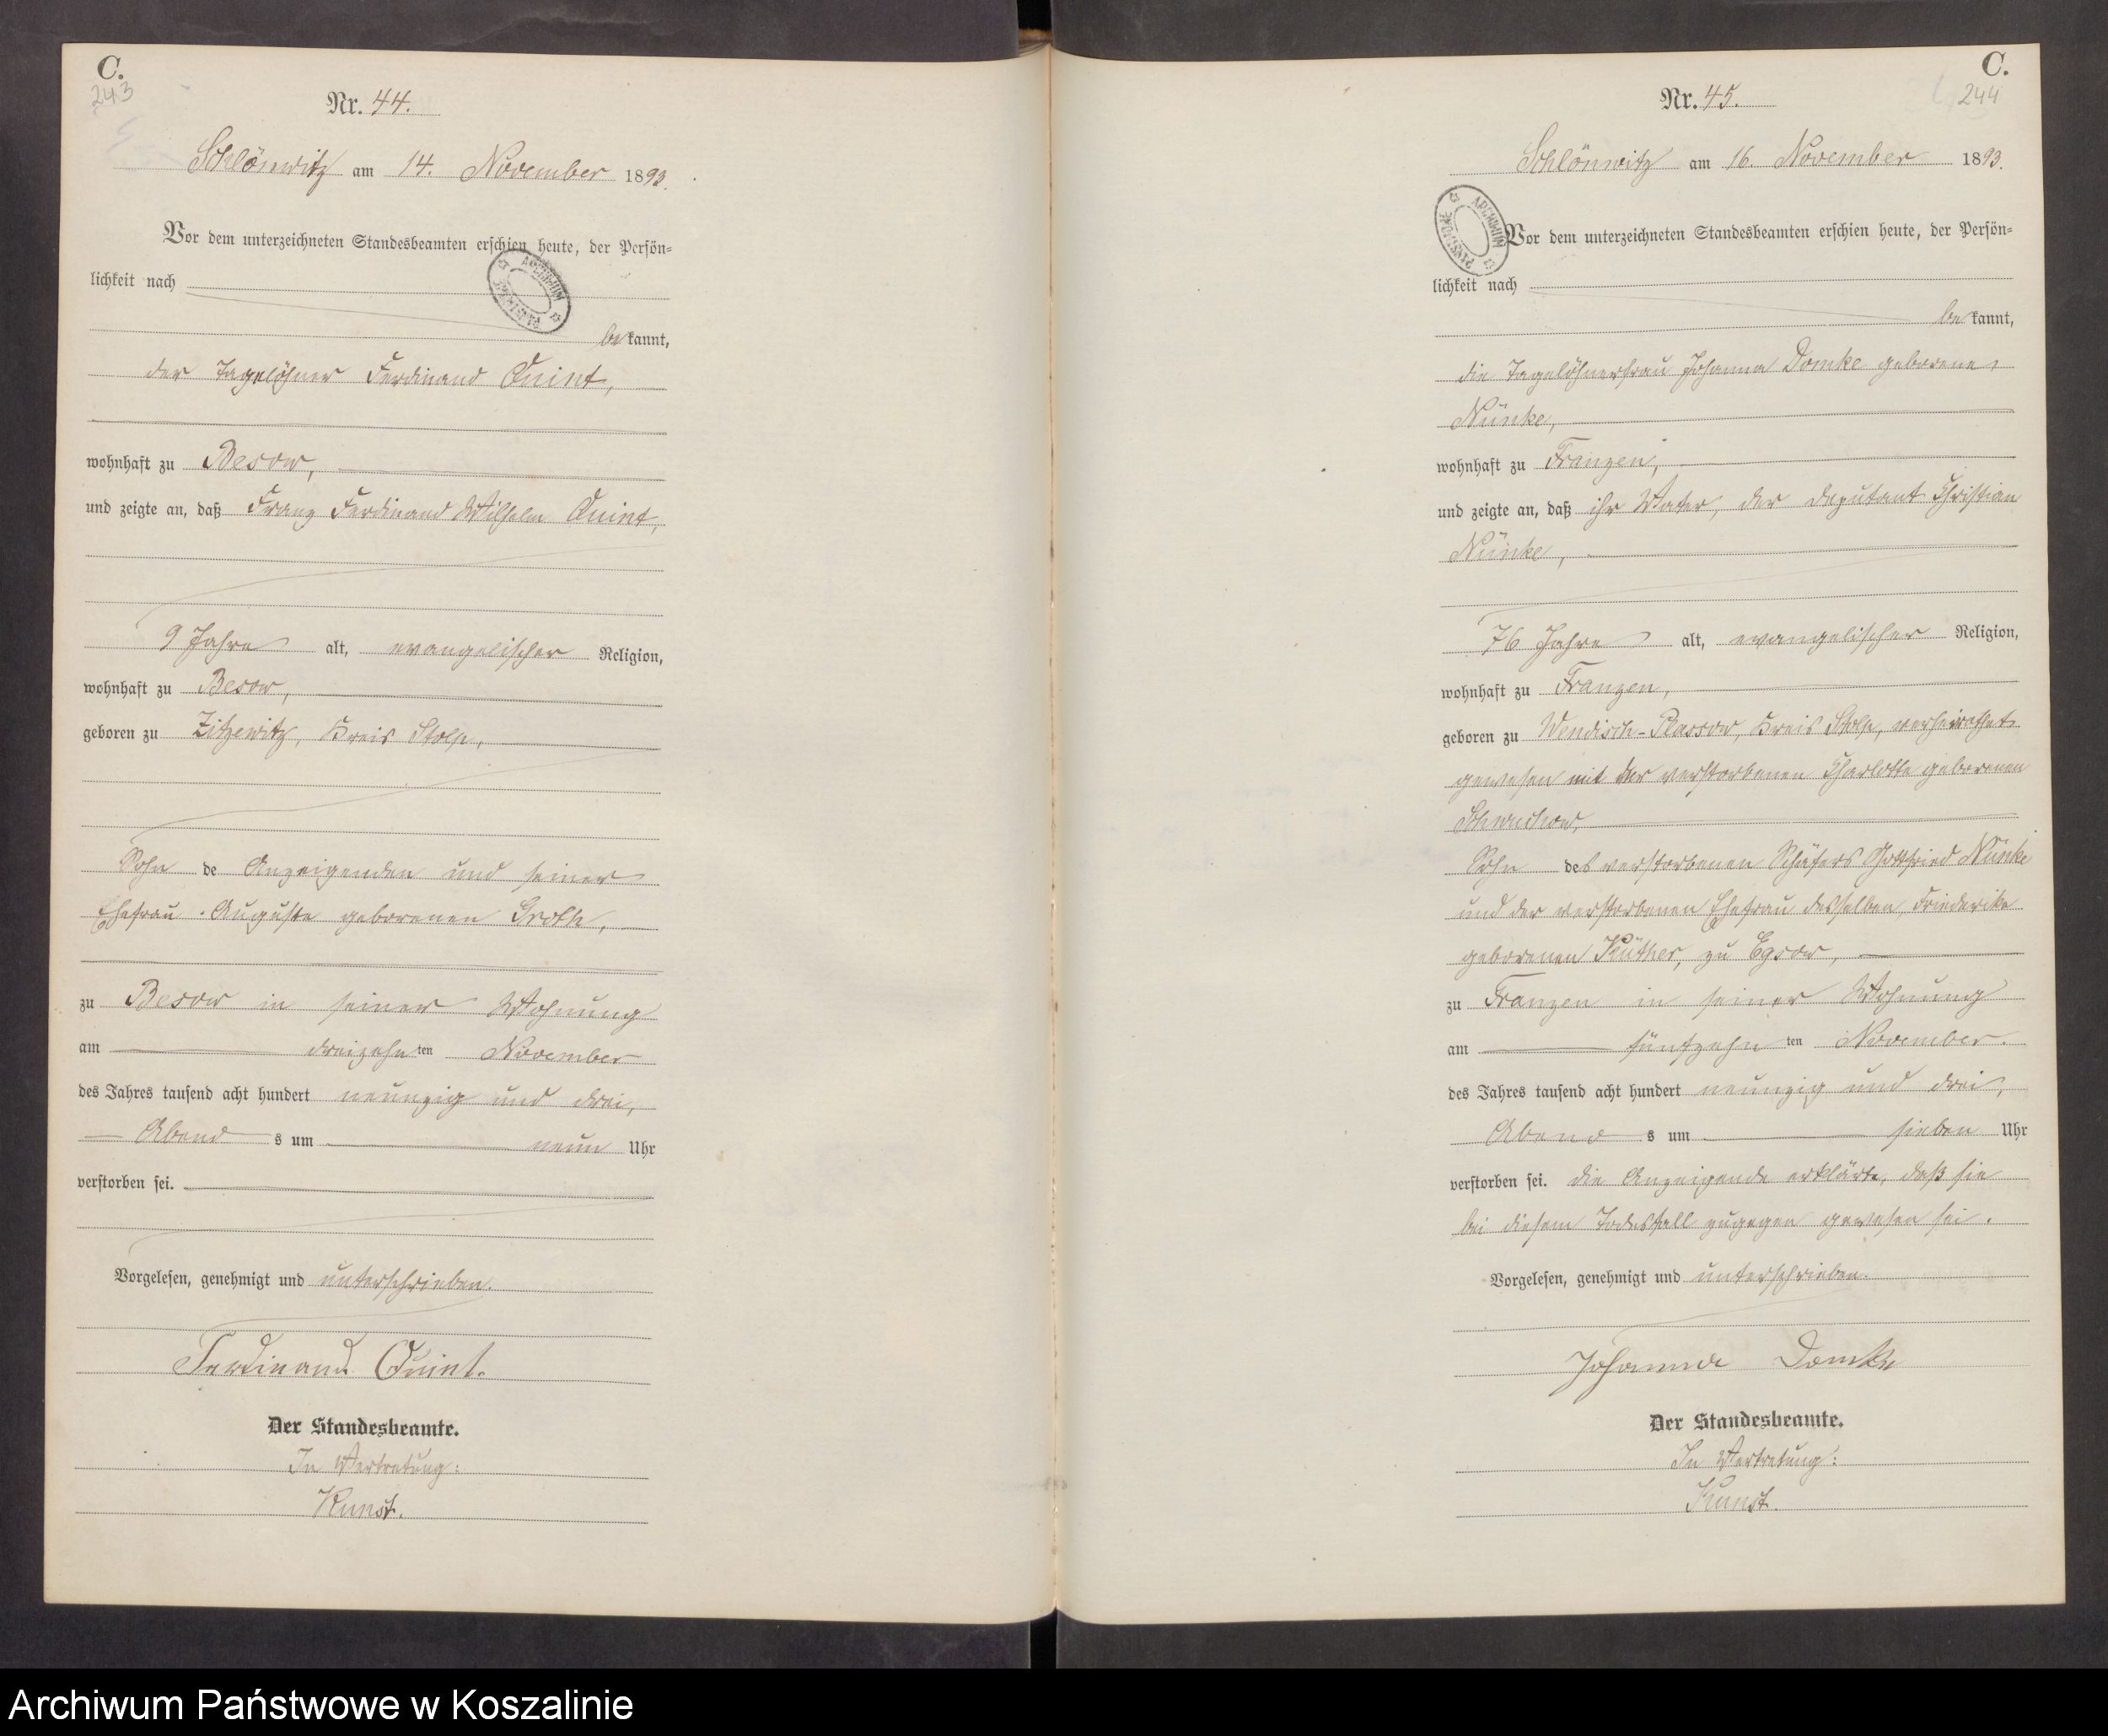 C.
243
Nr. 44.
Schlönwitz am 14. November 1893.
Vor dem unterzeichneten Standesbeamten erschien heute, der Persön=
lichkeit nach
bekannt,
der Tagelöhner Ferdinand Quint,
wohnhaft zu Besow,
und zeigte an, daß Franz Ferdinand Wilhelm Quint,
9 Jahre alt, evangelischer Religion,
wohnhaft zu Besow,
geboren zu Zitzewitz, Kreis Stolp,
Sohn de Anzeigenden und seiner
Ehefrau Auguste geborenen Groth,
zu Besow in seiner Wohnung
am dreizehnten November
des Jahres tausend acht hundert neunzig und drei,
Abends um neun Uhr
verstorben sei.
Vorgelesen, genehmigt und unterschrieben.
Ferdinand Quint.
Der Standesbeamte.
In Vertretung:
Kunst.
C.
244
Nr. 45.
Schlönwitz am 16. November 1893.
ARCHIWUM PAŃSTWOWE
Vor dem unterzeichneten Standesbeamten erschien heute, der Persön=
lichkeit nach
bekannt,
die Tagelöhnerfrau Johanna Domke geborene
Nünke,
wohnhaft zu Franzen,
und zeigte an, daß ihr Vater, der Deputant Christian
Nünke,
76 Jahre alt, evangelischer Religion,
wohnhaft zu Franzen,
geboren zu Wendisch-Plassow, Kreis Stolp, verheirathet
gewesen mit der verstorbenen Charlotte geborenen
Sohn des verstorbenen Schäfers Gottfried Nünke
und der verstorbenen Ehefrau desselben, Friederike
geborenen Küther, zu Egsow,
zu Franzen in seiner Wohnung
am fünfzehnten November
des Jahres tausend acht hundert neunzig und drei,
Abends um sieben Uhr
verstorben sei. Die Anzeigende erklärte, daß sie
bei diesem Todesfall zugegen gewesen sei.
Vorgelesen, genehmigt und unterschrieben.
Johanna Domke
Der Standesbeamte.
In Vertretung:
Kunst.
Archiwum Państwowe w Koszalinie